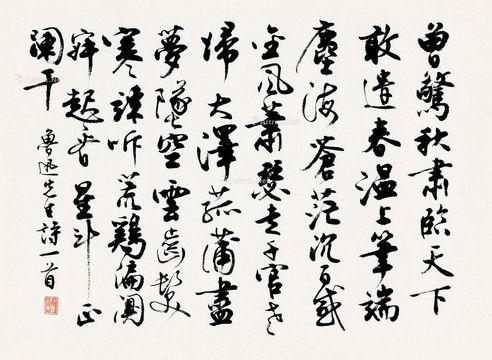 曾驚秋肅臨天下
敢遣春温上筆端
塵海蒼茫沉百感
金風蕭瑟走千官老
歸大澤菰蒲盡
夢墜空雲齒髮
寒竦听荒鷄偏闃
寂起看星斗正
闌干
魯迅先生詩一首